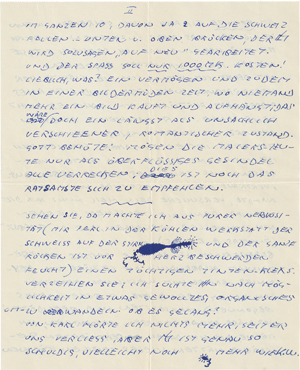 III
IM GANZEN 10, DAVON JA 2 AUF DIE SCHWEIZ
FALLEN. UNTEN U. OBEN BRÜCKEN, DER
WIRD SOZUSAGEN „AUF NEU" GEARBEITET.
UND DER SPASS SOLL NUR 1000 MK. KOSTEN!
LIEBLICH, WAS? EIN VERMÖGEN UND ZUDEM
IN EINER BILDERMÜDEN ZEIT, WO NIEMAND
MEHR EIN BILD KAUFT UND AUFHÄNGT; DAS
WÄRE DOCH EIN LÄNGST ALS UNSACHLICH
VERSCHIEENER, ROMANTISCHER ZUSTAND.
GOTT BEHÜTE! MÖGEN DIE MALERSLEU-
TE NUR ALS ÜBERFLÜSSIGES GESINDEL
ALLE VERRECKEN, DIES IST NOCH DAS
RATSAMSTE SICH ZU EMPFEHLEN.
SEHEN SIE, DA MACHTE ICH AUS PURER NERVOSI-
TÄT (MIR PERLT IN DER KÜHLEN WERKSTATT DER
SCHWEISS AUF DER UND DER GANZE
KÖRPER IST VOR HERZBESCHWERDEN
FEUCHT) EINEN TÜCHTIGEN TINTENKLEKS.
VERZEIHEN SIE; ICH SUCHTE IHN NACH MÖG-
LICHKEIT IN ETWAS GEWOLLTES, ORGANISCHES
UM-ZU VERWANDELN. OB ES GELANG?
VON KARL HÖRTE ICH NICHTS MEHR, SEIT ER
UNS VERLIESS, ABER IST GENAU SO
SCHULDIG, VIELLEICHT NOCH MEHR